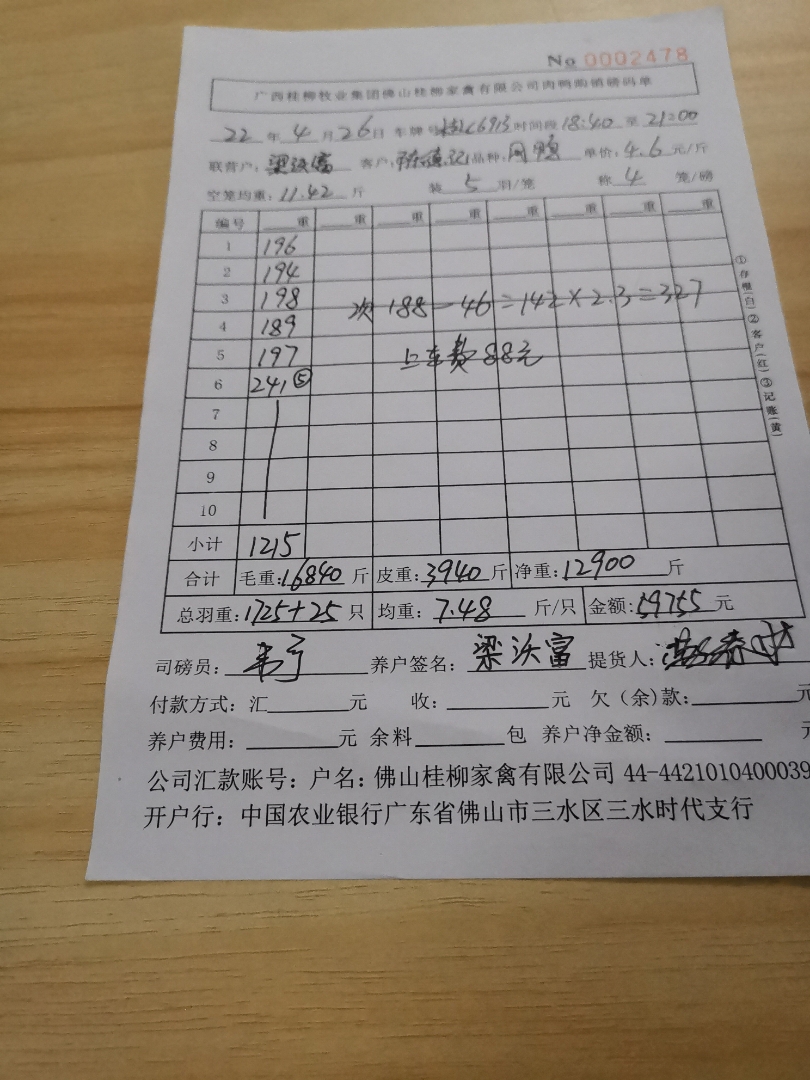 No 0002478
广西桂柳牧业集团佛山桂柳家禽有限公司肉鸭购销磅码单
22 年 4 月 26 日 车牌号 C6913 时间段 18:40 至 21:00
联营户: 梁沃富 客户: 品种: 单价: 4.6 元/斤
空笼均重: 11.42 斤 装 5 羽/笼 称 4 笼/磅
编号 重 重 重 重 重 重 重 重
1 196
2 194
3 198 次 188-46=142×2.3=327
4 189
5 197 上车费 88元
6 241 ⑤
7
8
9
10
小计 1215
合计 毛重: 16840 斤 皮重: 3940 斤 净重: 12900 斤
总羽重: 1725+25 只 均重: 7.48 斤/只 金额: 59755 元
司磅员: 养户签名: 梁沃富 提货人:
付款方式: 汇 元 收: 元 欠(余)款: 元
养户费用: 元 余料 包 养户净金额: 元
公司汇款账号: 户名: 佛山桂柳家禽有限公司 44-4421010400039
开户行: 中国农业银行广东省佛山市三水区三水时代支行
①存根(白)②客户(红)③记账(黄)